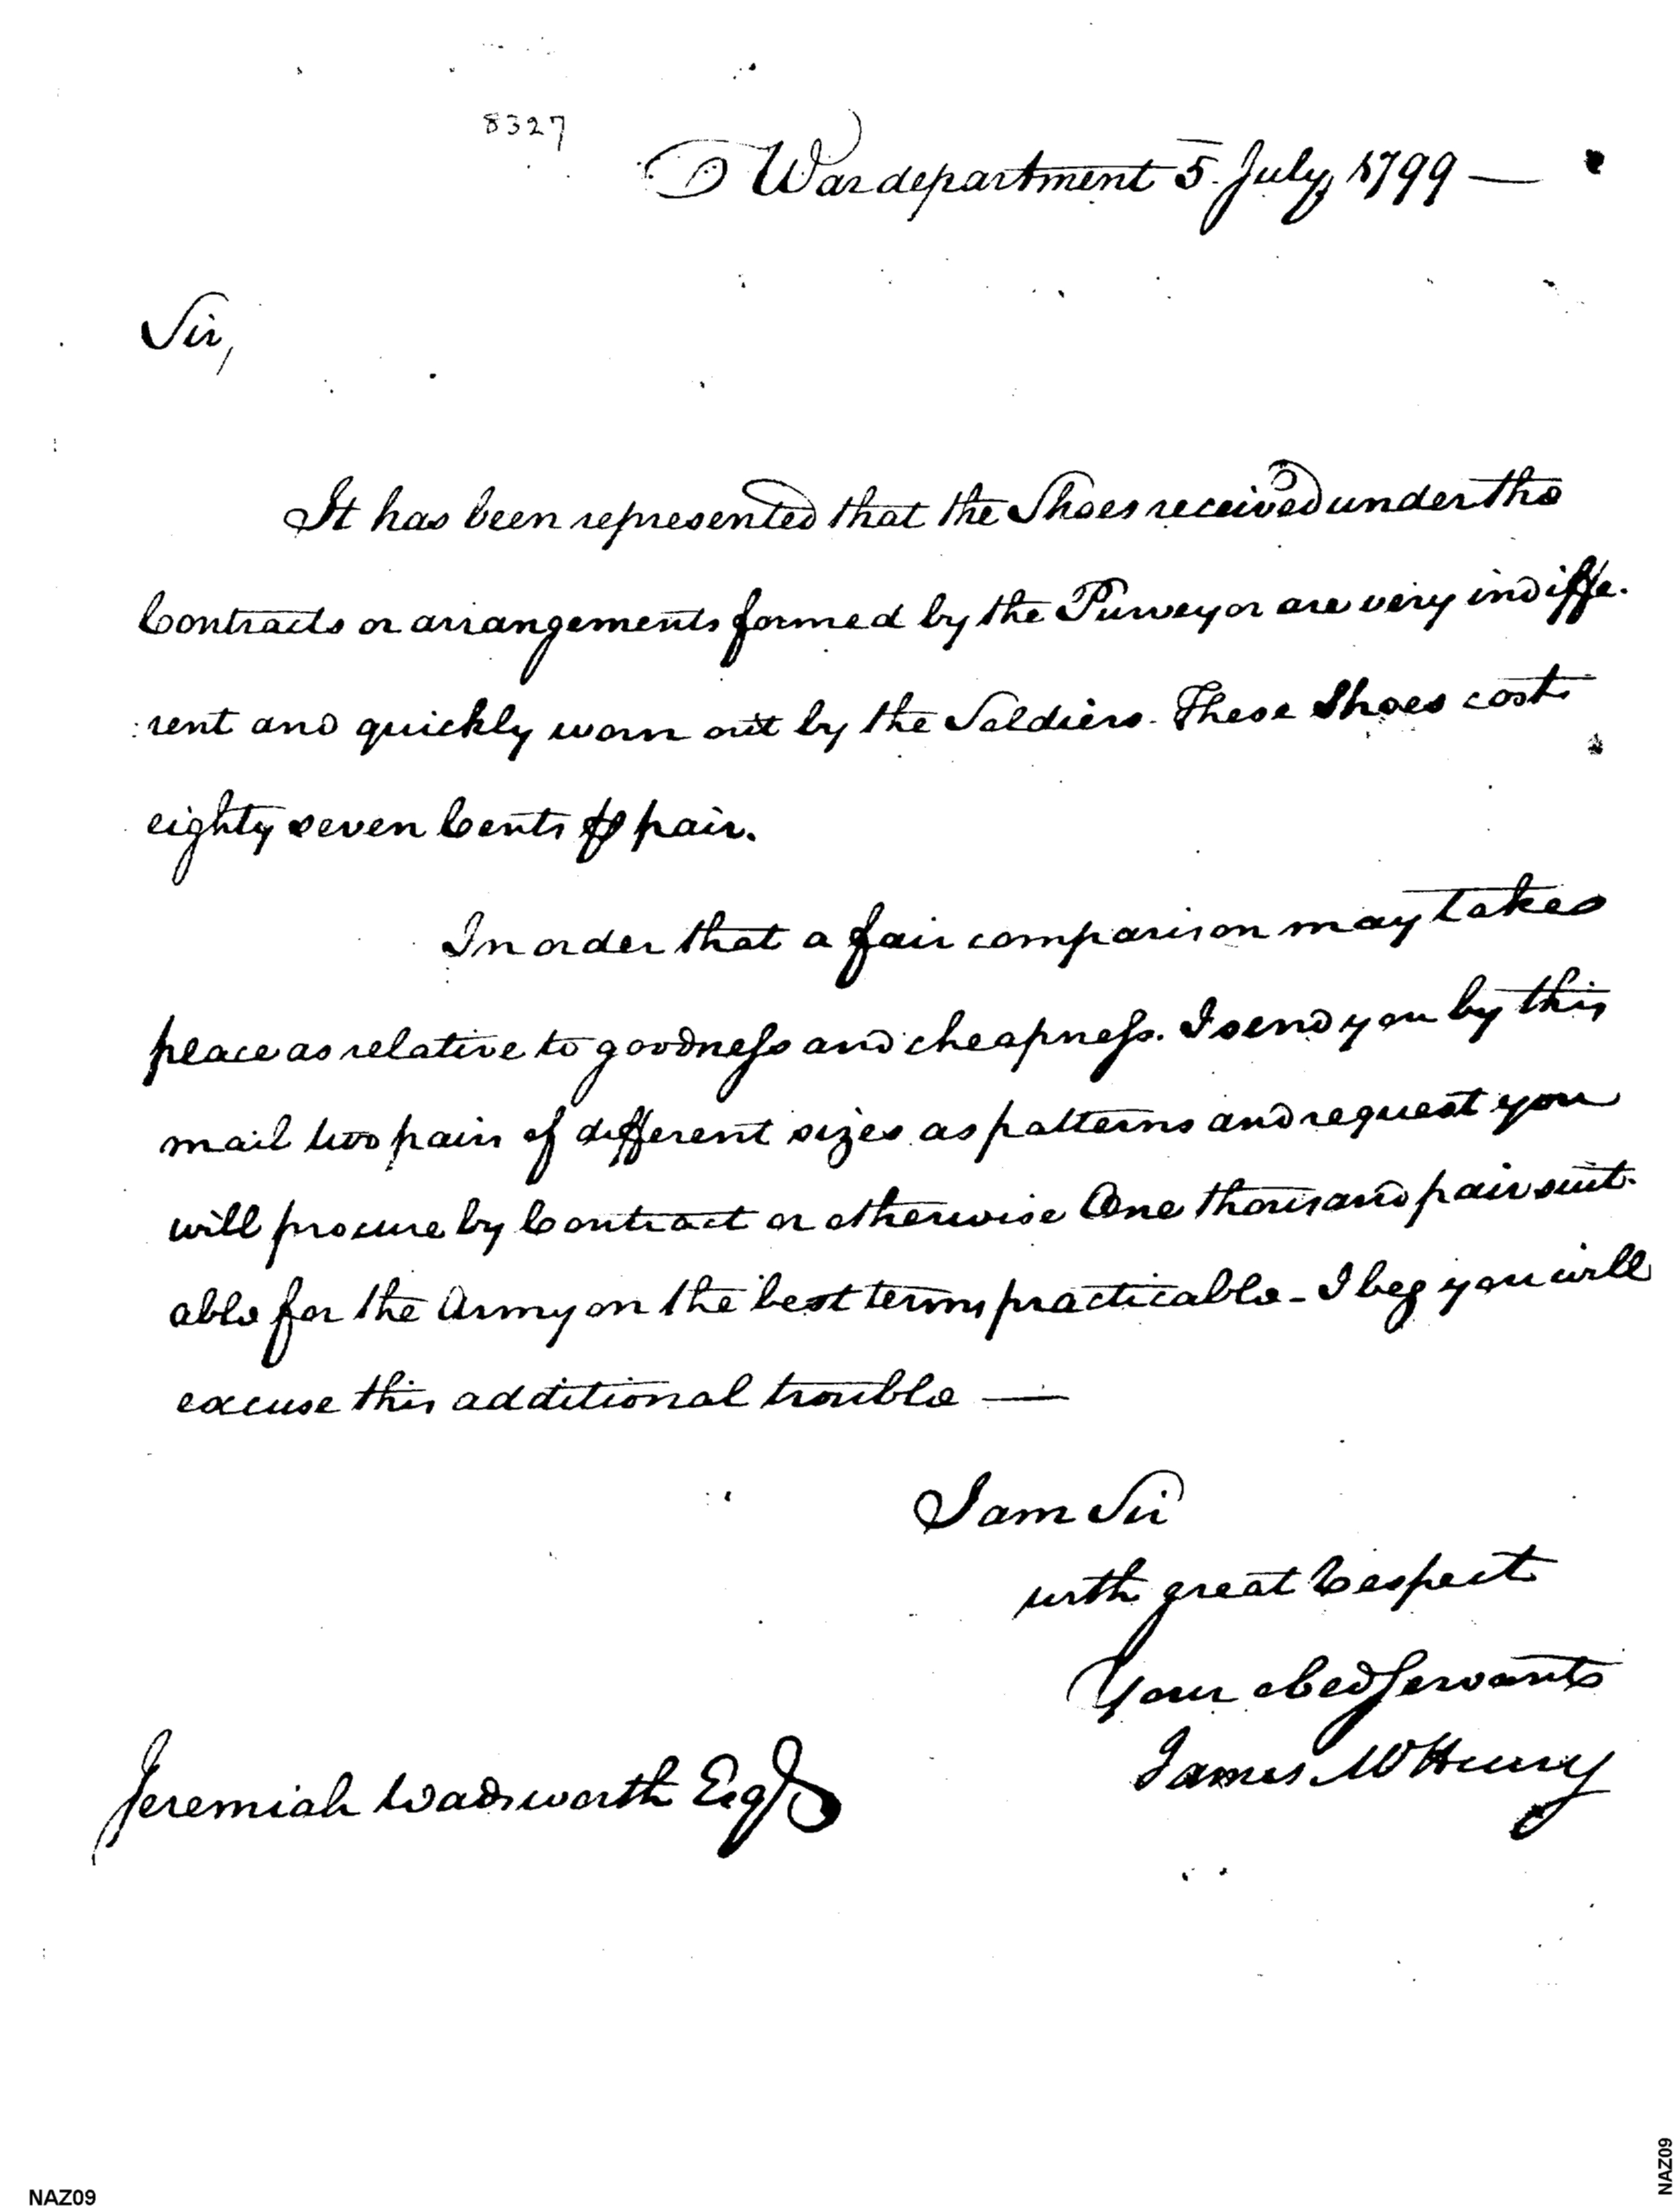 8327
War department 5. July, 1799 —
Sir,
It has been represented that the Shoes received under the
Contracts or arrangements formed by the Purveyor are very indiffe.
:rent and quickly worn out by the Soldiers. These Shoes cost
eighty seven Cents ⅌ pair.
In order that a fair comparison may take
place as relative to goodness and cheapness. I send you by this
mail two pair of different sizes as patterns and request you
will procure by Contract or otherwise One thousand pair suit.
able for the Army on the best terms practicable - I beg you will
excuse this additional trouble —
I am Sir
with great Respect
Your obed Servant
James McHenry
Jeremiah Wadsworth Esqr
NAZ09
NAZ09